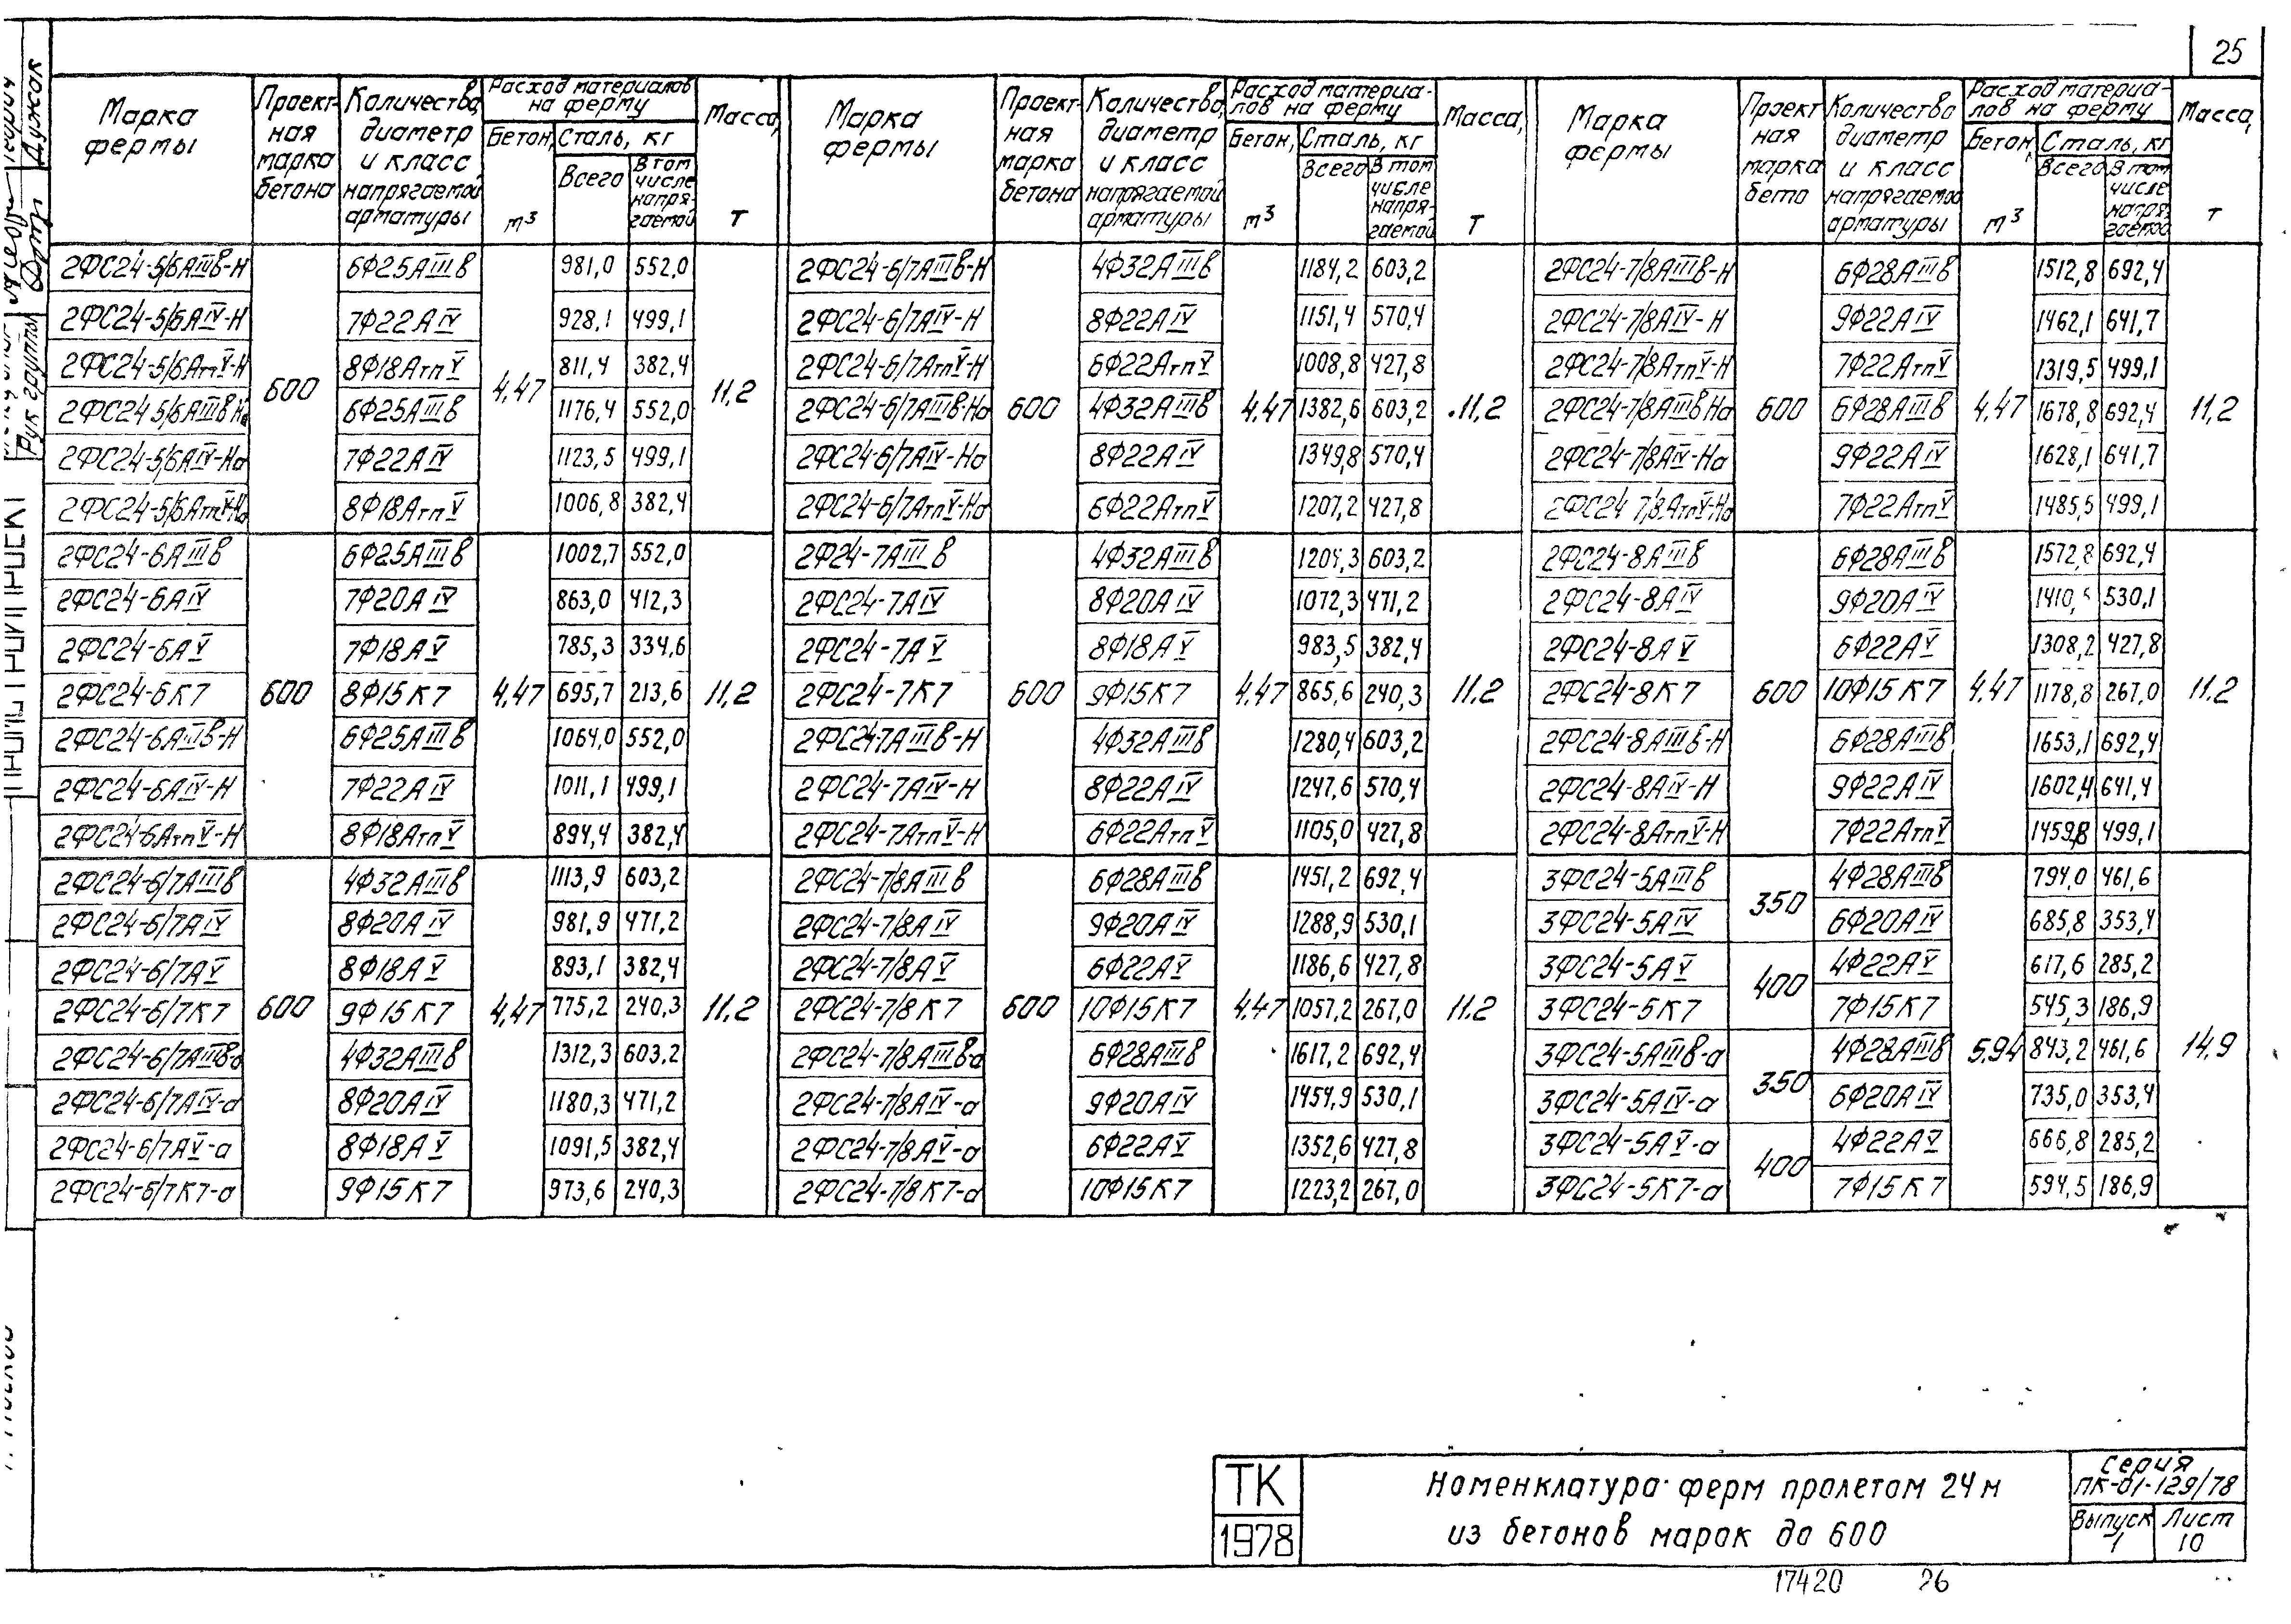 25
Марка фермы | Проектная марка бетона | Количество, диаметр и класс напрягаемой арматуры | Расход материалов на ферму | Бетон, м³ | Сталь, кг | Всего | В том числе напрягаемой | Масса, т
2ФС24-5/6АIIIв-Н | 600 | 6Ф25АIIIв | 4,47 | 981,0 | 552,0 | 11,2
2ФС24-5/6АIV-Н | 7Ф22АIV | 928,1 | 499,1
2ФС24-5/6АтпV-Н | 8Ф18АтпV | 811,4 | 382,4
2ФС24-5/6АIIIв-На | 6Ф25АIIIв | 1176,4 | 552,0
2ФС24-5/6АIV-На | 7Ф22АIV | 1123,5 | 499,1
2ФС24-5/6АтпV-На | 8Ф18АтпV | 1006,8 | 382,4
2ФС24-6АIIIв | 600 | 6Ф25АIIIв | 4,47 | 1002,7 | 552,0 | 11,2
2ФС24-6АIV | 7Ф20АIV | 863,0 | 412,3
2ФС24-6АV | 7Ф18АV | 785,3 | 334,6
2ФС24-6К7 | 8Ф15К7 | 695,7 | 213,6
2ФС24-6АIIIв-Н | 6Ф25АIIIв | 1064,0 | 552,0
2ФС24-6АIV-Н | 7Ф22АIV | 1011,1 | 499,1
2ФС24-6АтпV-Н | 8Ф18АтпV | 894,4 | 382,4
2ФС24-6/7АIIIв | 600 | 4Ф32АIIIв | 4,47 | 1113,9 | 603,2 | 11,2
2ФС24-6/7АIV | 8Ф20АIV | 981,9 | 471,2
2ФС24-6/7АV | 8Ф18АV | 893,1 | 382,4
2ФС24-6/7К7 | 9Ф15К7 | 775,2 | 240,3
2ФС24-6/7АIIIв-а | 4Ф32АIIIв | 1312,3 | 603,2
2ФС24-6/7АIV-а | 8Ф20АIV | 1180,3 | 471,2
2ФС24-6/7АV-а | 8Ф18АV | 1091,5 | 382,4
2ФС24-6/7К7-а | 9Ф15К7 | 973,6 | 240,3
Марка фермы | Проектная марка бетона | Количество, диаметр и класс напрягаемой арматуры | Расход материалов на ферму | Бетон, м³ | Сталь, кг | Всего | В том числе напрягаемой | Масса, т
2ФС24-6/7АIIIв-Н | 600 | 4Ф32АIIIв | 4,47 | 1184,2 | 603,2 | 11,2
2ФС24-6/7АIV-Н | 8Ф22АIV | 1151,4 | 570,4
2ФС24-6/7АтпV-Н | 6Ф22АтпV | 1008,8 | 427,8
2ФС24-6/7АIIIв-На | 4Ф32АIIIв | 1382,6 | 603,2
2ФС24-6/7АIV-На | 8Ф22АIV | 1349,8 | 570,4
2ФС24-6/7АтпV-На | 6Ф22АтпV | 1207,2 | 427,8
2Ф24-7АIIIв | 600 | 4Ф32АIIIв | 4,47 | 1204,3 | 603,2 | 11,2
2ФС24-7АIV | 8Ф20АIV | 1072,3 | 471,2
2ФС24-7АV | 8Ф18АV | 983,5 | 382,4
2ФС24-7К7 | 9Ф15К7 | 865,6 | 240,3
2ФС24-7АIIIв-Н | 4Ф32АIIIв | 1280,4 | 603,2
2ФС24-7АIV-Н | 8Ф22АIV | 1247,6 | 570,4
2ФС24-7АтпV-Н | 6Ф22АтпV | 1105,0 | 427,8
2ФС24-7/8АIIIв | 600 | 6Ф28АIIIв | 4,47 | 1451,2 | 692,4 | 11,2
2ФС24-7/8АIV | 9Ф20АIV | 1288,9 | 530,1
2ФС24-7/8АV | 6Ф22АV | 1186,6 | 427,8
2ФС24-7/8К7 | 10Ф15К7 | 1057,2 | 267,0
2ФС24-7/8АIIIв-а | 6Ф28АIIIв | 1617,2 | 692,4
2ФС24-7/8АIV-а | 9Ф20АIV | 1454,9 | 530,1
2ФС24-7/8АV-а | 6Ф22АV | 1352,6 | 427,8
2ФС24-7/8К7-а | 10Ф15К7 | 1223,2 | 267,0
Марка фермы | Проект ная марка бето | Количество диаметр и класс напрягаемой арматуры | Расход материалов на ферму | Бетон, м³ | Сталь, кг | Всего | В том числе напрягаемой | Масса, т
2ФС24-7/8АIIIв-Н | 600 | 6Ф28АIIIв | 4,47 | 1512,8 | 692,4 | 11,2
2ФС24-7/8АIV-Н | 9Ф22АIV | 1462,1 | 641,7
2ФС24-7/8АтпV-Н | 7Ф22АтпV | 1319,5 | 499,1
2ФС24-7/8АIIIвНа | 6Ф28АIIIв | 1678,8 | 692,4
2ФС24-7/8АIV-На | 9Ф22АIV | 1628,1 | 641,7
2ФС24-7/8АтпV-На | 7Ф22АтпV | 1485,5 | 499,1
2ФС24-8АIIIв | 600 | 6Ф28АIIIв | 4,47 | 1572,8 | 692,4 | 11,2
2ФС24-8АIV | 9Ф20АIV | 1410,5 | 530,1
2ФС24-8АV | 6Ф22АV | 1308,2 | 427,8
2ФС24-8К7 | 10Ф15К7 | 1178,8 | 267,0
2ФС24-8АIIIв-Н | 6Ф28АIIIв | 1653,1 | 692,4
2ФС24-8АIV-Н | 9Ф22АIV | 1602,4 | 641,4
2ФС24-8АтпV-Н | 7Ф22АтпV | 1459,8 | 499,1
3ФС24-5АIIIв | 350 | 4Ф28АIIIв | 5,94 | 794,0 | 461,6 | 14,9
3ФС24-5АIV | 6Ф20АIV | 685,8 | 353,4
3ФС24-5АV | 400 | 4Ф22АV | 617,6 | 285,2
3ФС24-5К7 | 7Ф15К7 | 545,3 | 186,9
3ФС24-5АIIIв-а | 350 | 4Ф28АIIIв | 843,2 | 461,6
3ФС24-5АIV-а | 6Ф20АIV | 735,0 | 353,4
3ФС24-5АV-а | 400 | 4Ф22АV | 666,8 | 285,2
3ФС24-5К7-а | 7Ф15К7 | 594,5 | 186,9
Рук группы
Дужак
ТК
1978
Номенклатура ферм пролетом 24 м
из бетонов марок до 600
Серия
ПК-01-129/78
Выпуск 1
Лист 10
17420 26